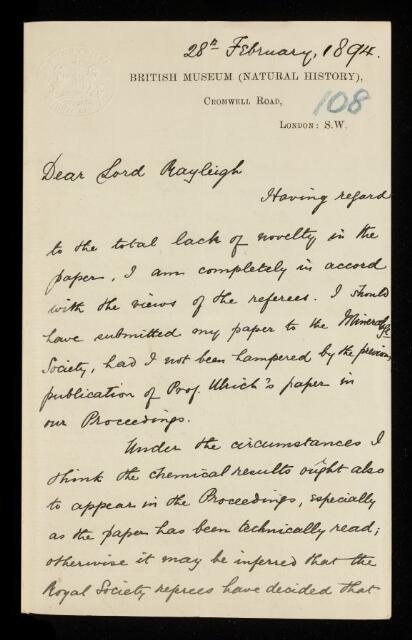 28th February, 1894.
BRITISH MUSEUM (NATURAL HISTORY),
CROMWELL ROAD,
108
LONDON: S.W.
Dear Lord Rayleigh
Having regard
to the total lack of novelty in the
paper, I am completely in accord
with the views of the referees. I should
have submitted my paper to the Mineralogl
Society, had I not been hampered by the previous
publication of Prof. Ulrich's paper in
our Proceedings.
Under the circumstances I
think the chemical results ought also
to appear in the Proceedings, especially
as the paper has been technically read;
otherwise it may be inferred that the
Royal Society referees have decided that